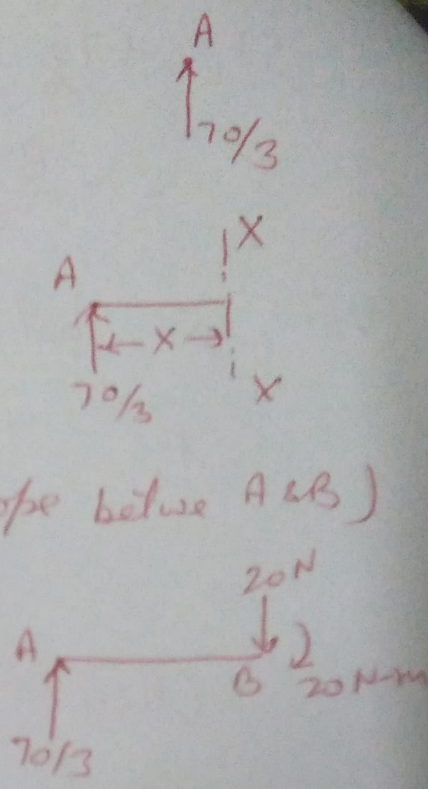 A
70/3
X
A
X
70/3
X
ope betwe A&B)
20N
A
B 20 N-m
70/3